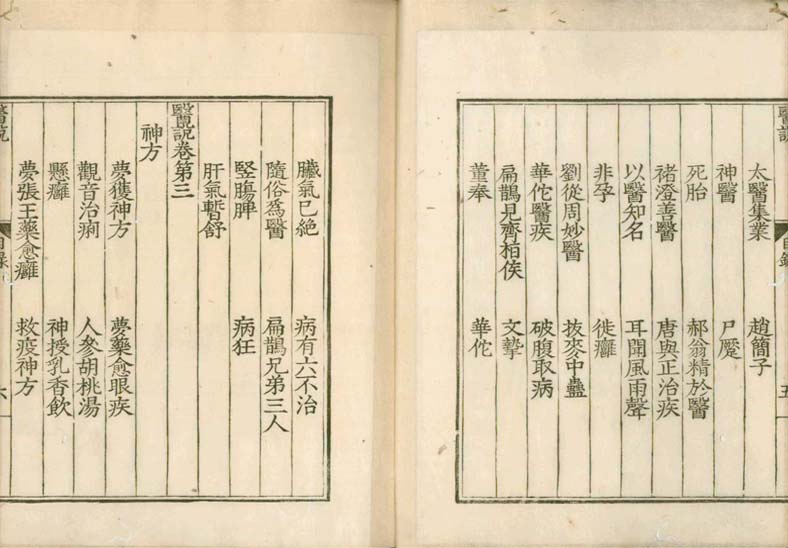 醫說 目錄 五
太醫集業 趙簡子
神醫 尸蹷
死胎 郝翁精於醫
褚澄善醫 唐與正治疾
以醫知名 耳聞風雨聲
非孕 徙癰
劉從周妙醫 拔麥中蠱
華佗醫疾 破腹取病
扁鵲見齊桓侯 文摯
董奉 華佗
臟氣已絶 病有六不治
隨俗爲醫 扁鵲兄弟三人
竪膓脾 病狂
肝氣暫舒
醫說卷第三
神方
夢獲神方 夢藥愈眼疾
觀音治痢 人參胡桃湯
懸癰 神授乳香飲
夢張王藥愈癰 救疫神方
醫說 目錄 六